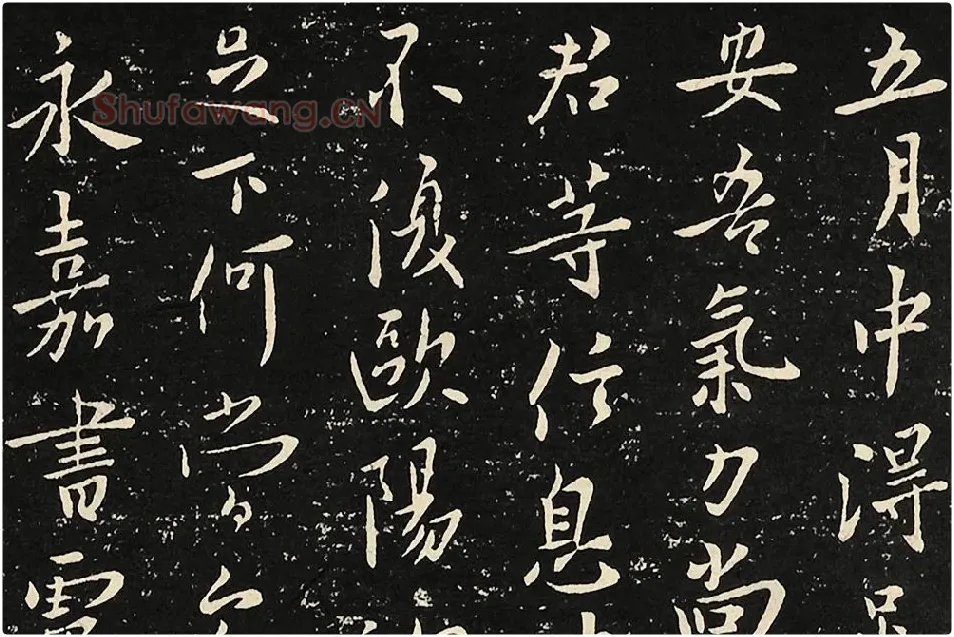 五月中得
安吾氣力尚
君等信息
不復歐陽
下何尚
永嘉書
Shufawang.CN